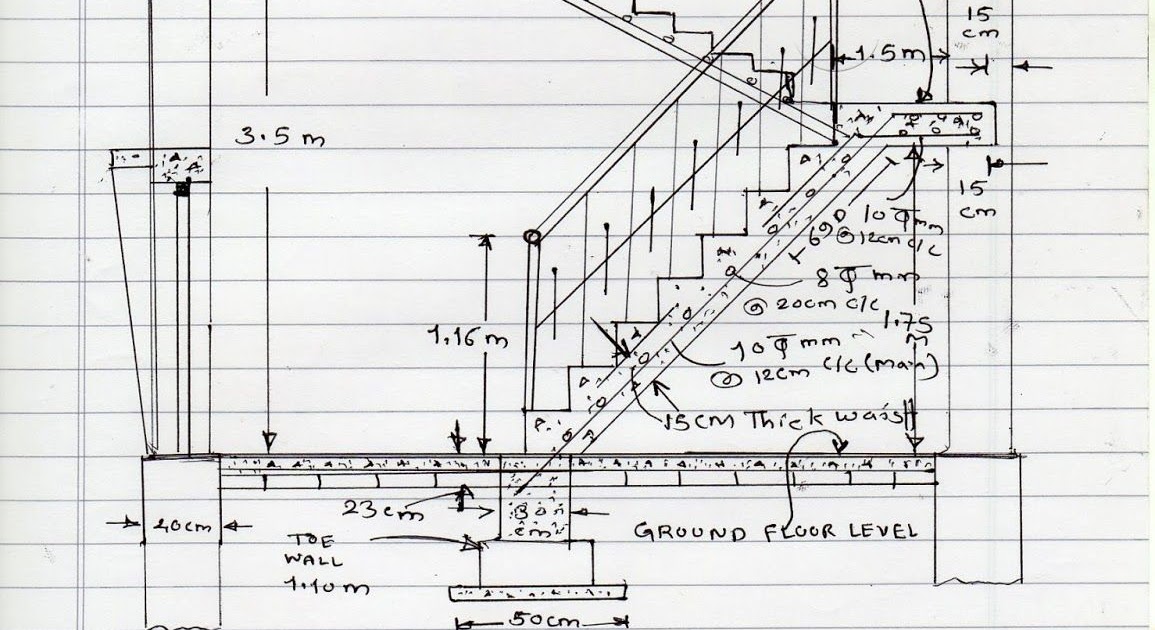 15
cm
1.5m
3.5 m
15
cm
10 Φ mm
@ 12cm c/c
8 Φ mm
@ 20cm c/c
1.75
m
1.16m
10 Φ mm
@ 12cm c/c (main)
15cm Thick waist
23cm
30
cm
40cm
GROUND FLOOR LEVEL
TOE
WALL
1.10m
50cm